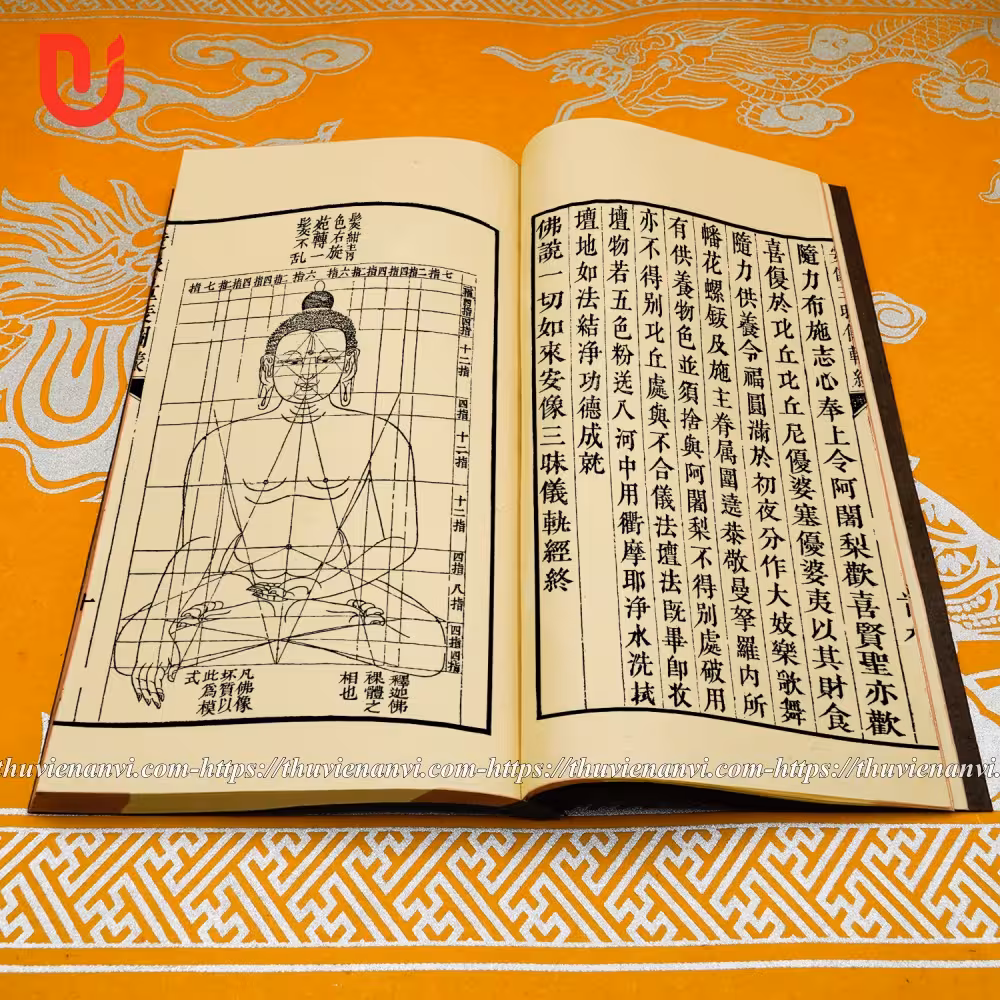 隨力布施志心奉上令阿闍梨歡喜賢聖亦歡
喜復於比丘比丘尼優婆塞優婆夷以其財食
隨力供養令福圓滿於初夜分作大妓樂歌舞
幡花螺鈸及施主眷屬圍遶恭敬曼拏羅內所
有供養物色並須捨與阿闍梨不得別處破用
亦不得別比丘處與不合儀法壇法既畢即收
壇物若五色粉送入河中用衢摩耶淨水洗拭
壇地如法結淨功德成就
佛說一切如來安像三昧儀軌經終
髮紺
色右旋
菀轉一
髮不乱
四指
十二指
四指
十二指
十二指
四指
八指
四指
四指
釋迦佛
裸體之
相也
凡佛像
坯質以
此爲模
式
thuvienanvi.com-https://thuvienanvi.com-https://thuvienanvi.com-https://thuvienanvi.